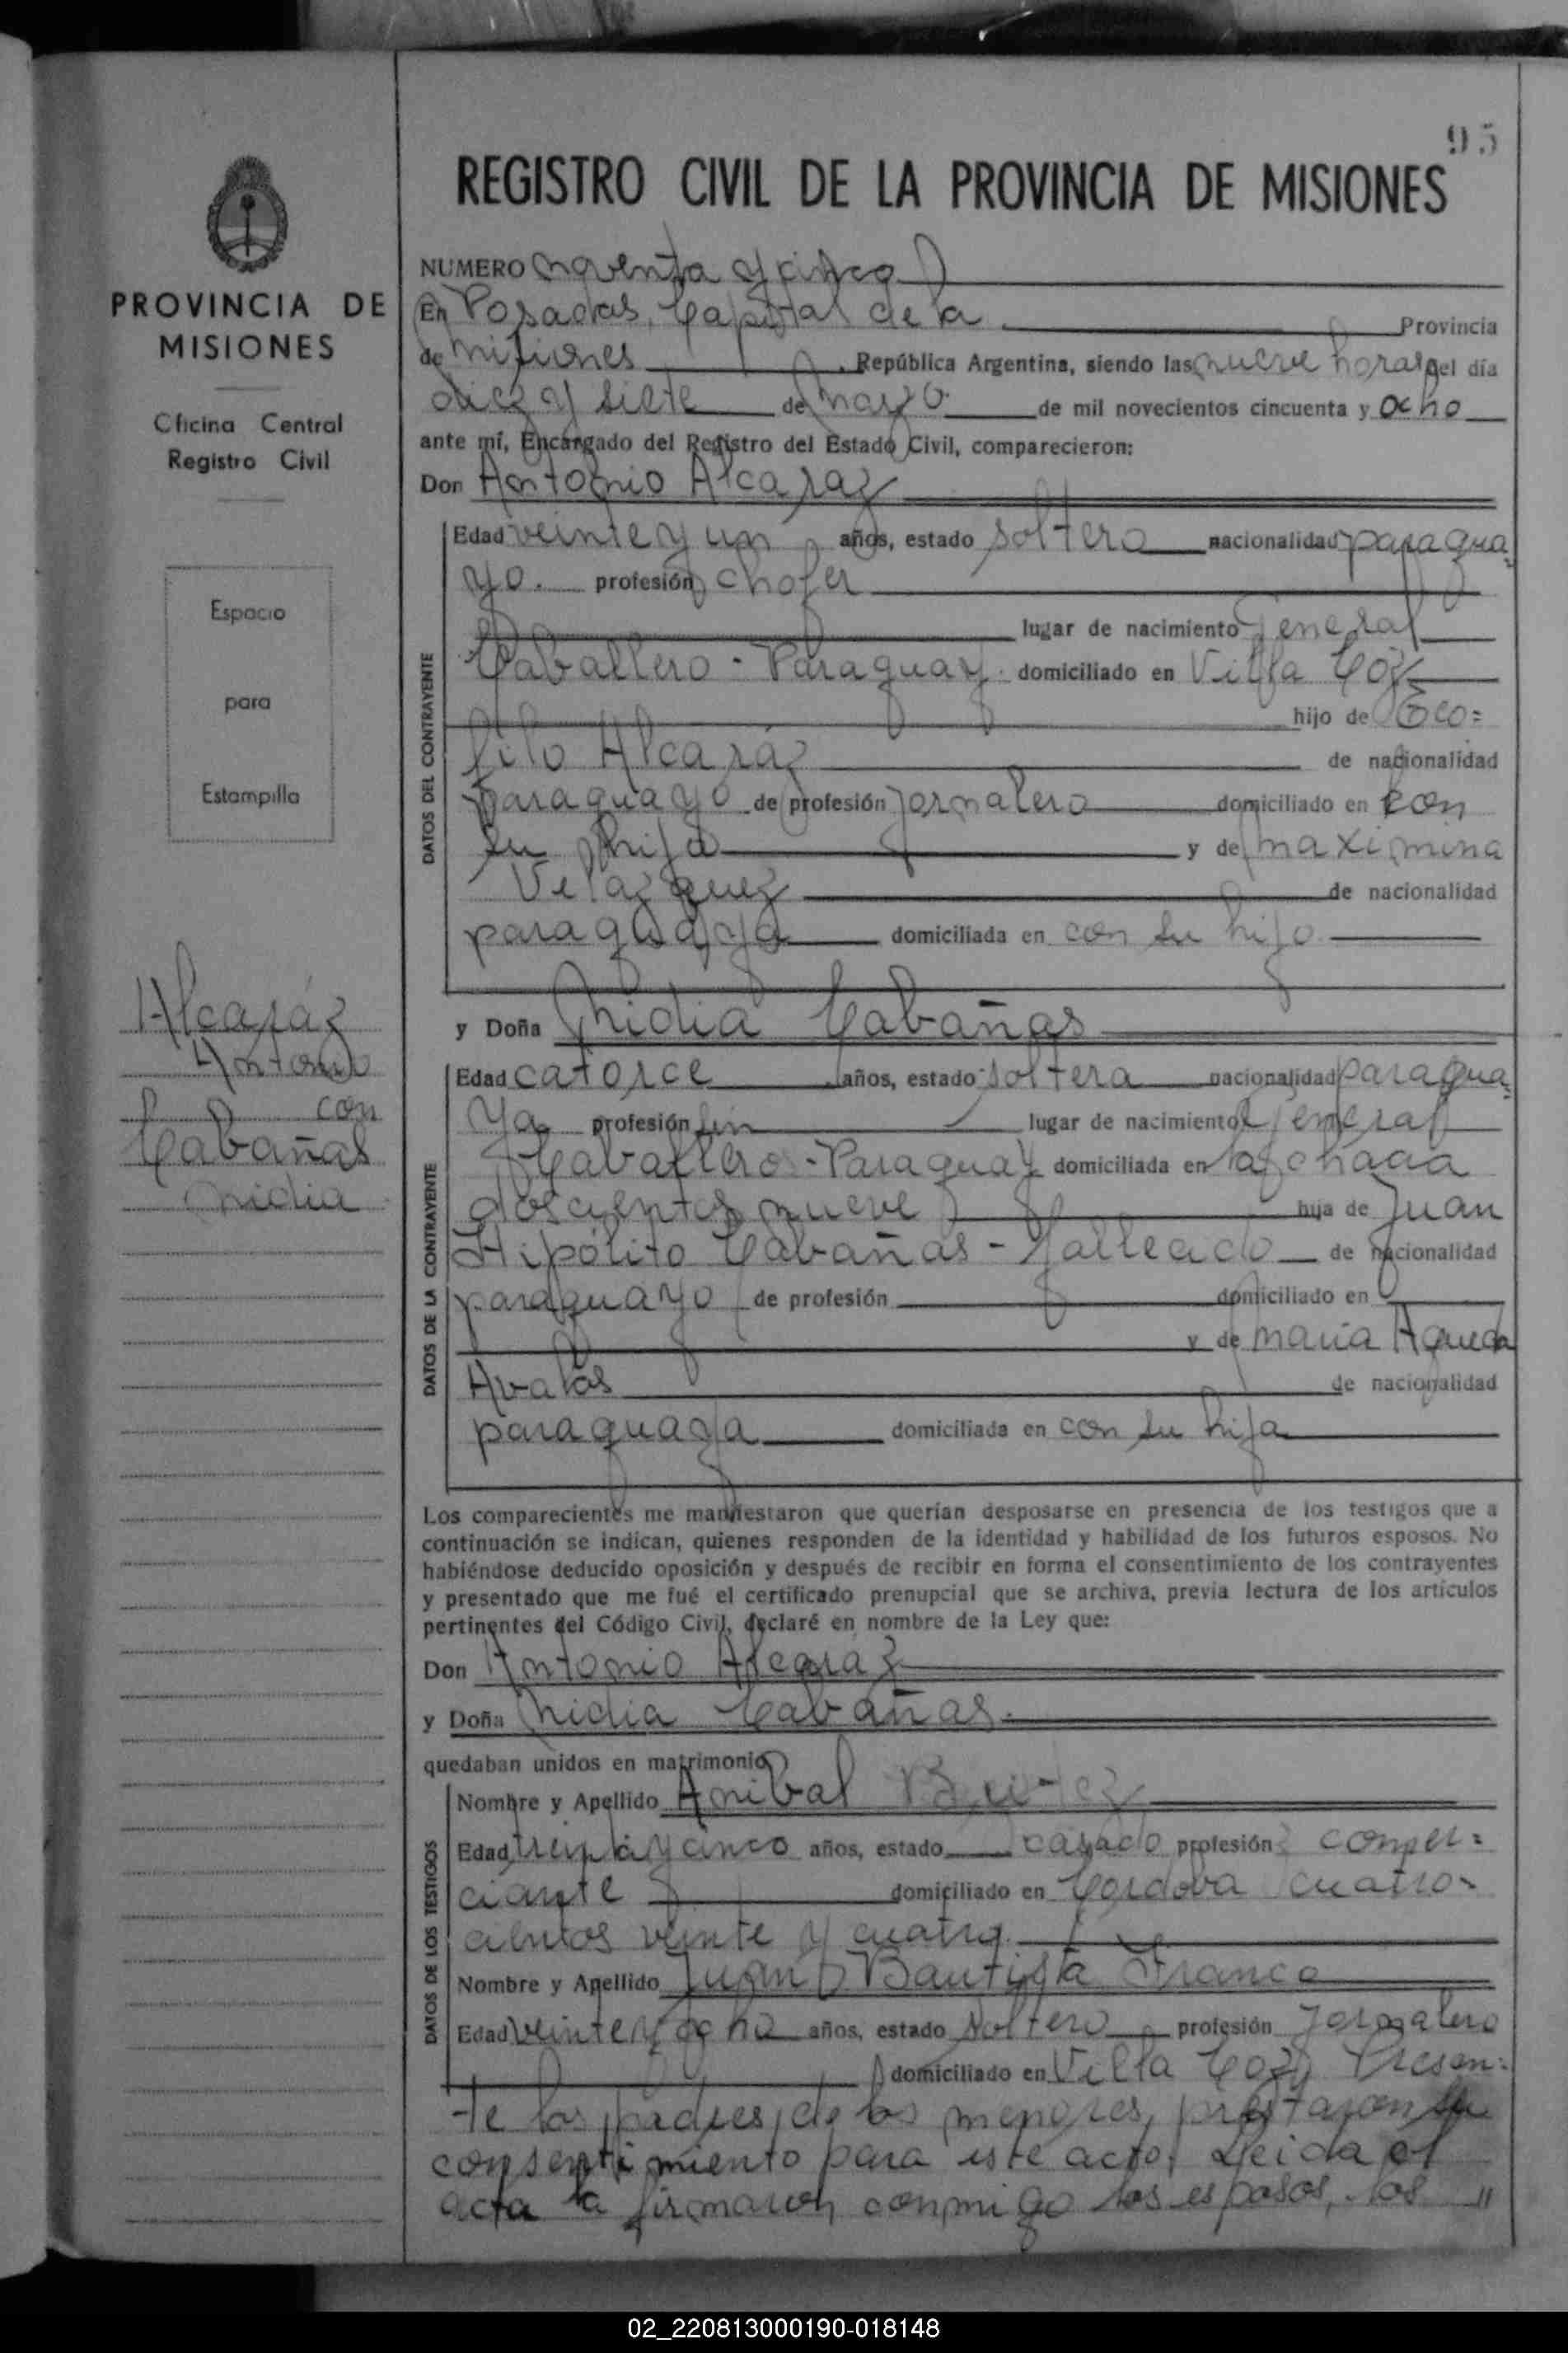 95
REGISTRO CIVIL DE LA PROVINCIA DE MISIONES
PROVINCIA DE
MISIONES
Oficina Central
Registro Civil
Espacio
para
Estampilla
Alcaráz
Antonio
con
Cabañas
Nidia
NUMERO noventa y cinco
En Posadas, Capital de la Provincia
de Misiones República Argentina, siendo las nueve horas del día
diez y siete de Marzo de mil novecientos cincuenta y ocho
ante mí, Encargado del Registro del Estado Civil, comparecieron:
Don Antonio Alcaraz
DATOS DEL CONTRAYENTE
Edad veinte y un años, estado soltero nacionalidad paragua=
yo. profesión chofer
lugar de nacimiento General
Caballero - Paraguay. domiciliado en Villa
hijo de
Alcaráz de nacionalidad
paraguayo de profesión Jornalero domiciliado en con
su hijo y de Maximina
Velazquez de nacionalidad
paraguaya domiciliada en con su hijo
y Doña Nidia Cabañas
DATOS DE LA CONTRAYENTE
Edad catorce años, estado soltera nacionalidad paragua=
ya profesión sin lugar de nacimiento General
Caballero - Paraguay domiciliada en la chacra
doscientos nueve hija de Juan
Hipólito Cabañas - fallecido de nacionalidad
paraguayo de profesión domiciliado en
y de Maria Agueda
Avalos de nacionalidad
paraguaya domiciliada en con su hija
Los comparecientes me manifestaron que querían desposarse en presencia de los testigos que a
continuación se indican, quienes responden de la identidad y habilidad de los futuros esposos. No
habiéndose deducido oposición y después de recibir en forma el consentimiento de los contrayentes
y presentado que me fué el certificado prenupcial que se archiva, previa lectura de los artículos
pertinentes del Código Civil, declaré en nombre de la Ley que:
Don Antonio Alcaráz
y Doña Nidia Cabañas.
quedaban unidos en matrimonio
DATOS DE LOS TESTIGOS
Nombre y Apellido Anibal
Edad treinta y cinco años, estado casado profesión comer=
ciante domiciliado en Cordoba cuatro=
cientos veinte y cuatro.
Nombre y Apellido Juan Bautista Franco
Edad veinte y ocho años, estado soltero profesión Jornalero
domiciliado en Villa Presen=
te los padres de los menores, prestaron su
consentimiento para este acto. Leida el
acta la firmaron conmigo los esposos, los "
02_220813000190-018148